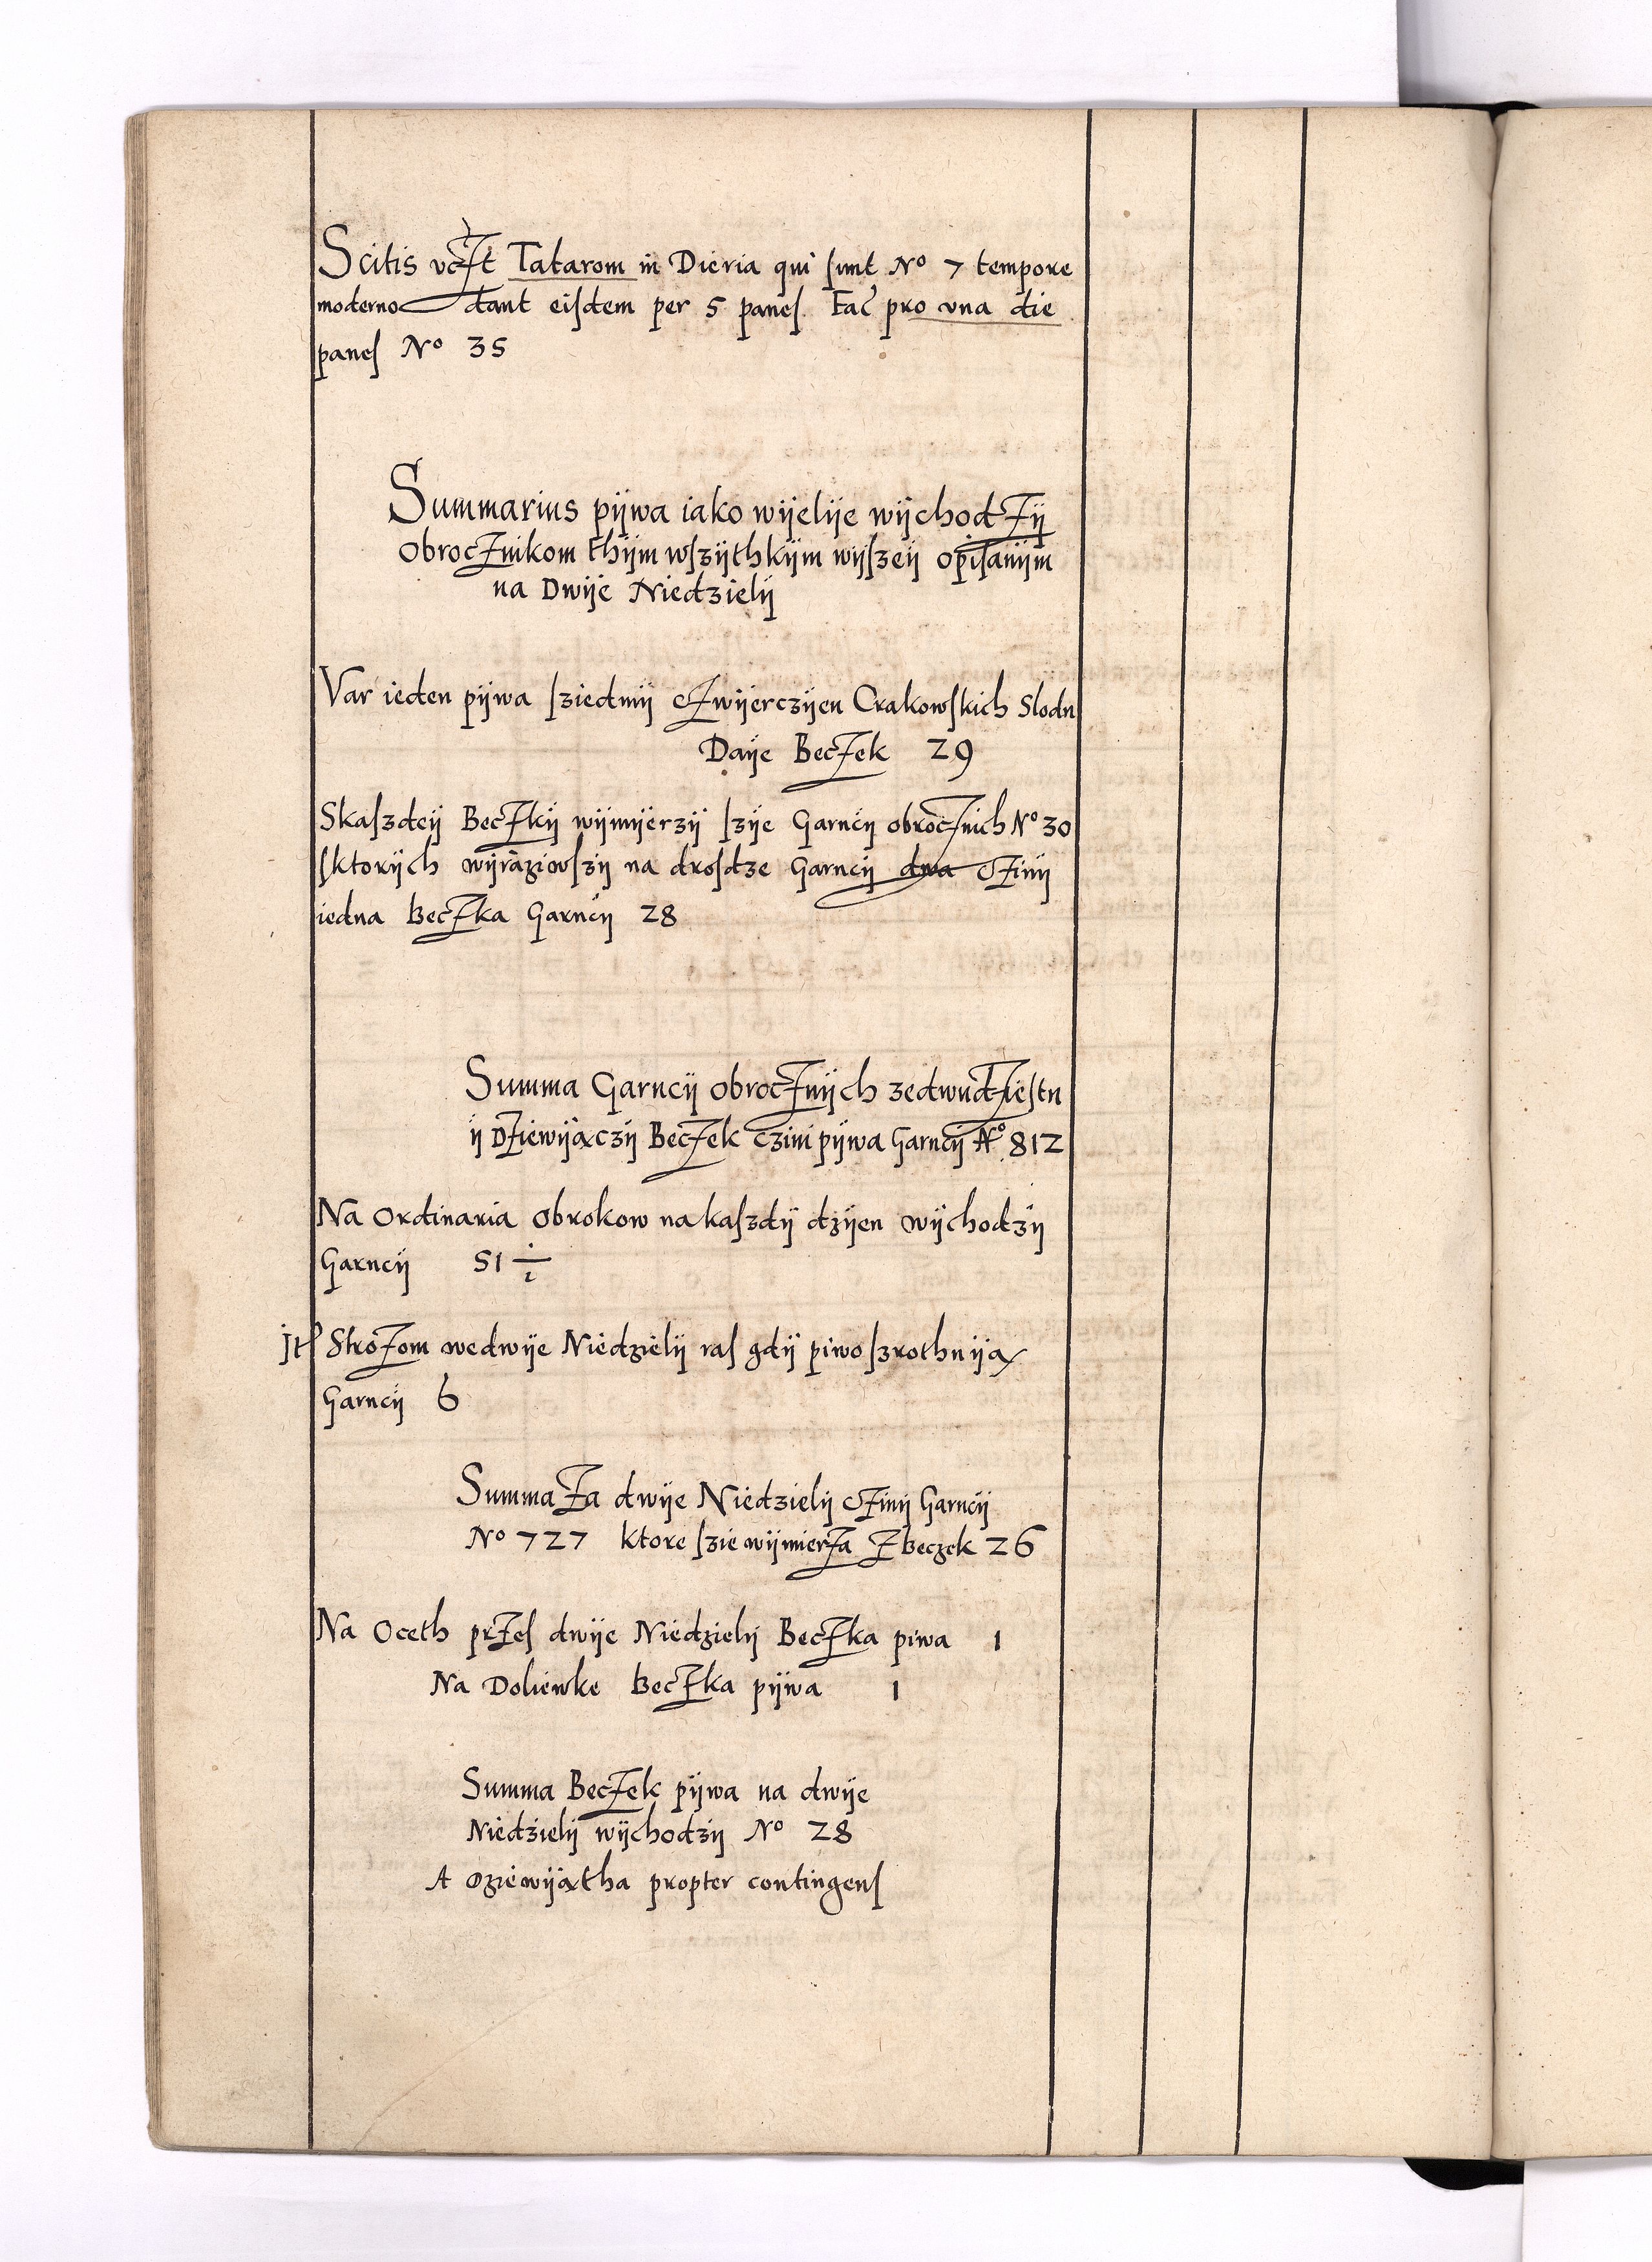 Scitis vczt Tatarom in Dieria qui sunt No 7 tempore
moderno dant eisdem per 5 panes. Fac pro vna die
panes No 35
Summarius pijwa iako wijelije wijchodzij
obrocznikom thijm wszijthkijm wijszeij opisanijm
na Dwije Niedzielij
Var ieden pijwa sziedmij czwijerczijen Crakowskich Slodu
Daije Beczek 29
Skaszdeij Beczkij wijmijerzij szije Garncij obrocznich No 30
sktorijch wijraziwszij na drosdze Garncij dwa czinij
iedna beczka Garncij 28
Summa Garncij obrocznijch zedwudziestu
ij Dziewijaczij Beczek czini pijwa Garncij No 812
Na Ordinaria obrokow na kaszdij dzijen wijchodzij
Garncij 51 ½
Jt Strozom wedwije Niedzielij ras gdij piwo szrothuija
Garncij 6
Summa Za dwije Niedzielij czinij Garncij
No 727 ktore szie wijmierza Z beczek 26
Na Oceth przes dwije Niedzielij Beczka piwa 1
Na Doliewke beczka pijwa 1
Summa Beczek pijwa na dwije
Niedzielij wijchodzij No 28
A Dziewijatha propter contingens